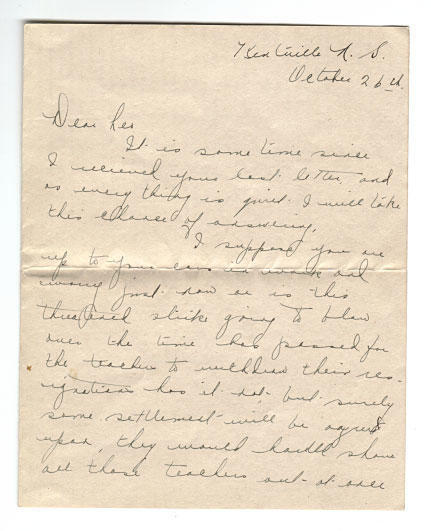 Kentville N. S.
October 26th.
Dear Leo
It is some time since
I recieved your last letter, and
as every thing is quiet I will take
this chance of answering.
I suppose you are
up to your ears in work and
worry just now or is this
threatened strike going to blow
over the time has passed for
the teachers to withdraw their res-
ignations has it not but surely
some settlement will be agreed
upon, they would hardly shove
all those teachers out at once